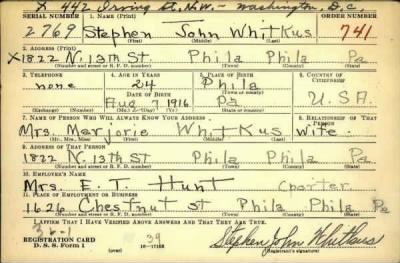 X 442 Irving St., N.W. - Washington, D.C.
SERIAL NUMBER 1. NAME (Print) ORDER NUMBER
2769 Stephen John Whitkus 741
(First) (Middle) (Last)
2. ADDRESS (Print)
X1822 N. 13th St Phila Phila Pa
(Number and street or R. F. D. number) (Town) (County) (State)
3. TELEPHONE 4. AGE IN YEARS 5. PLACE OF BIRTH 6. COUNTRY OF CITIZENSHIP
none 24 Phila
DATE OF BIRTH (Town or county)
Aug 7 1916 Pa U.S.A.
(Exchange) (Number) (Mo.) (Day) (Yr.) (State or country)
7. NAME OF PERSON WHO WILL ALWAYS KNOW YOUR ADDRESS 8. RELATIONSHIP OF THAT PERSON
Mrs. Marjorie Whitkus wife
(Mr., Mrs., Miss) (First) (Middle) (Last)
9. ADDRESS OF THAT PERSON
1822 N. 13th St Phila Phila Pa
(Number and street or R. F. D. number) (Town) (County) (State)
10. EMPLOYER'S NAME
Mrs. E. T. Hunt
11. PLACE OF EMPLOYMENT OR BUSINESS
1626 Chestnut St Phila Phila Pa
(Number and street or R. F. D. number) (Town) (County) (State)
I AFFIRM THAT I HAVE VERIFIED ABOVE ANSWERS AND THAT THEY ARE TRUE.
36-1
REGISTRATION CARD 39 Stephen John Whitkus
D. S. S. Form 1 (over) 16-17105 (Registrant's signature)